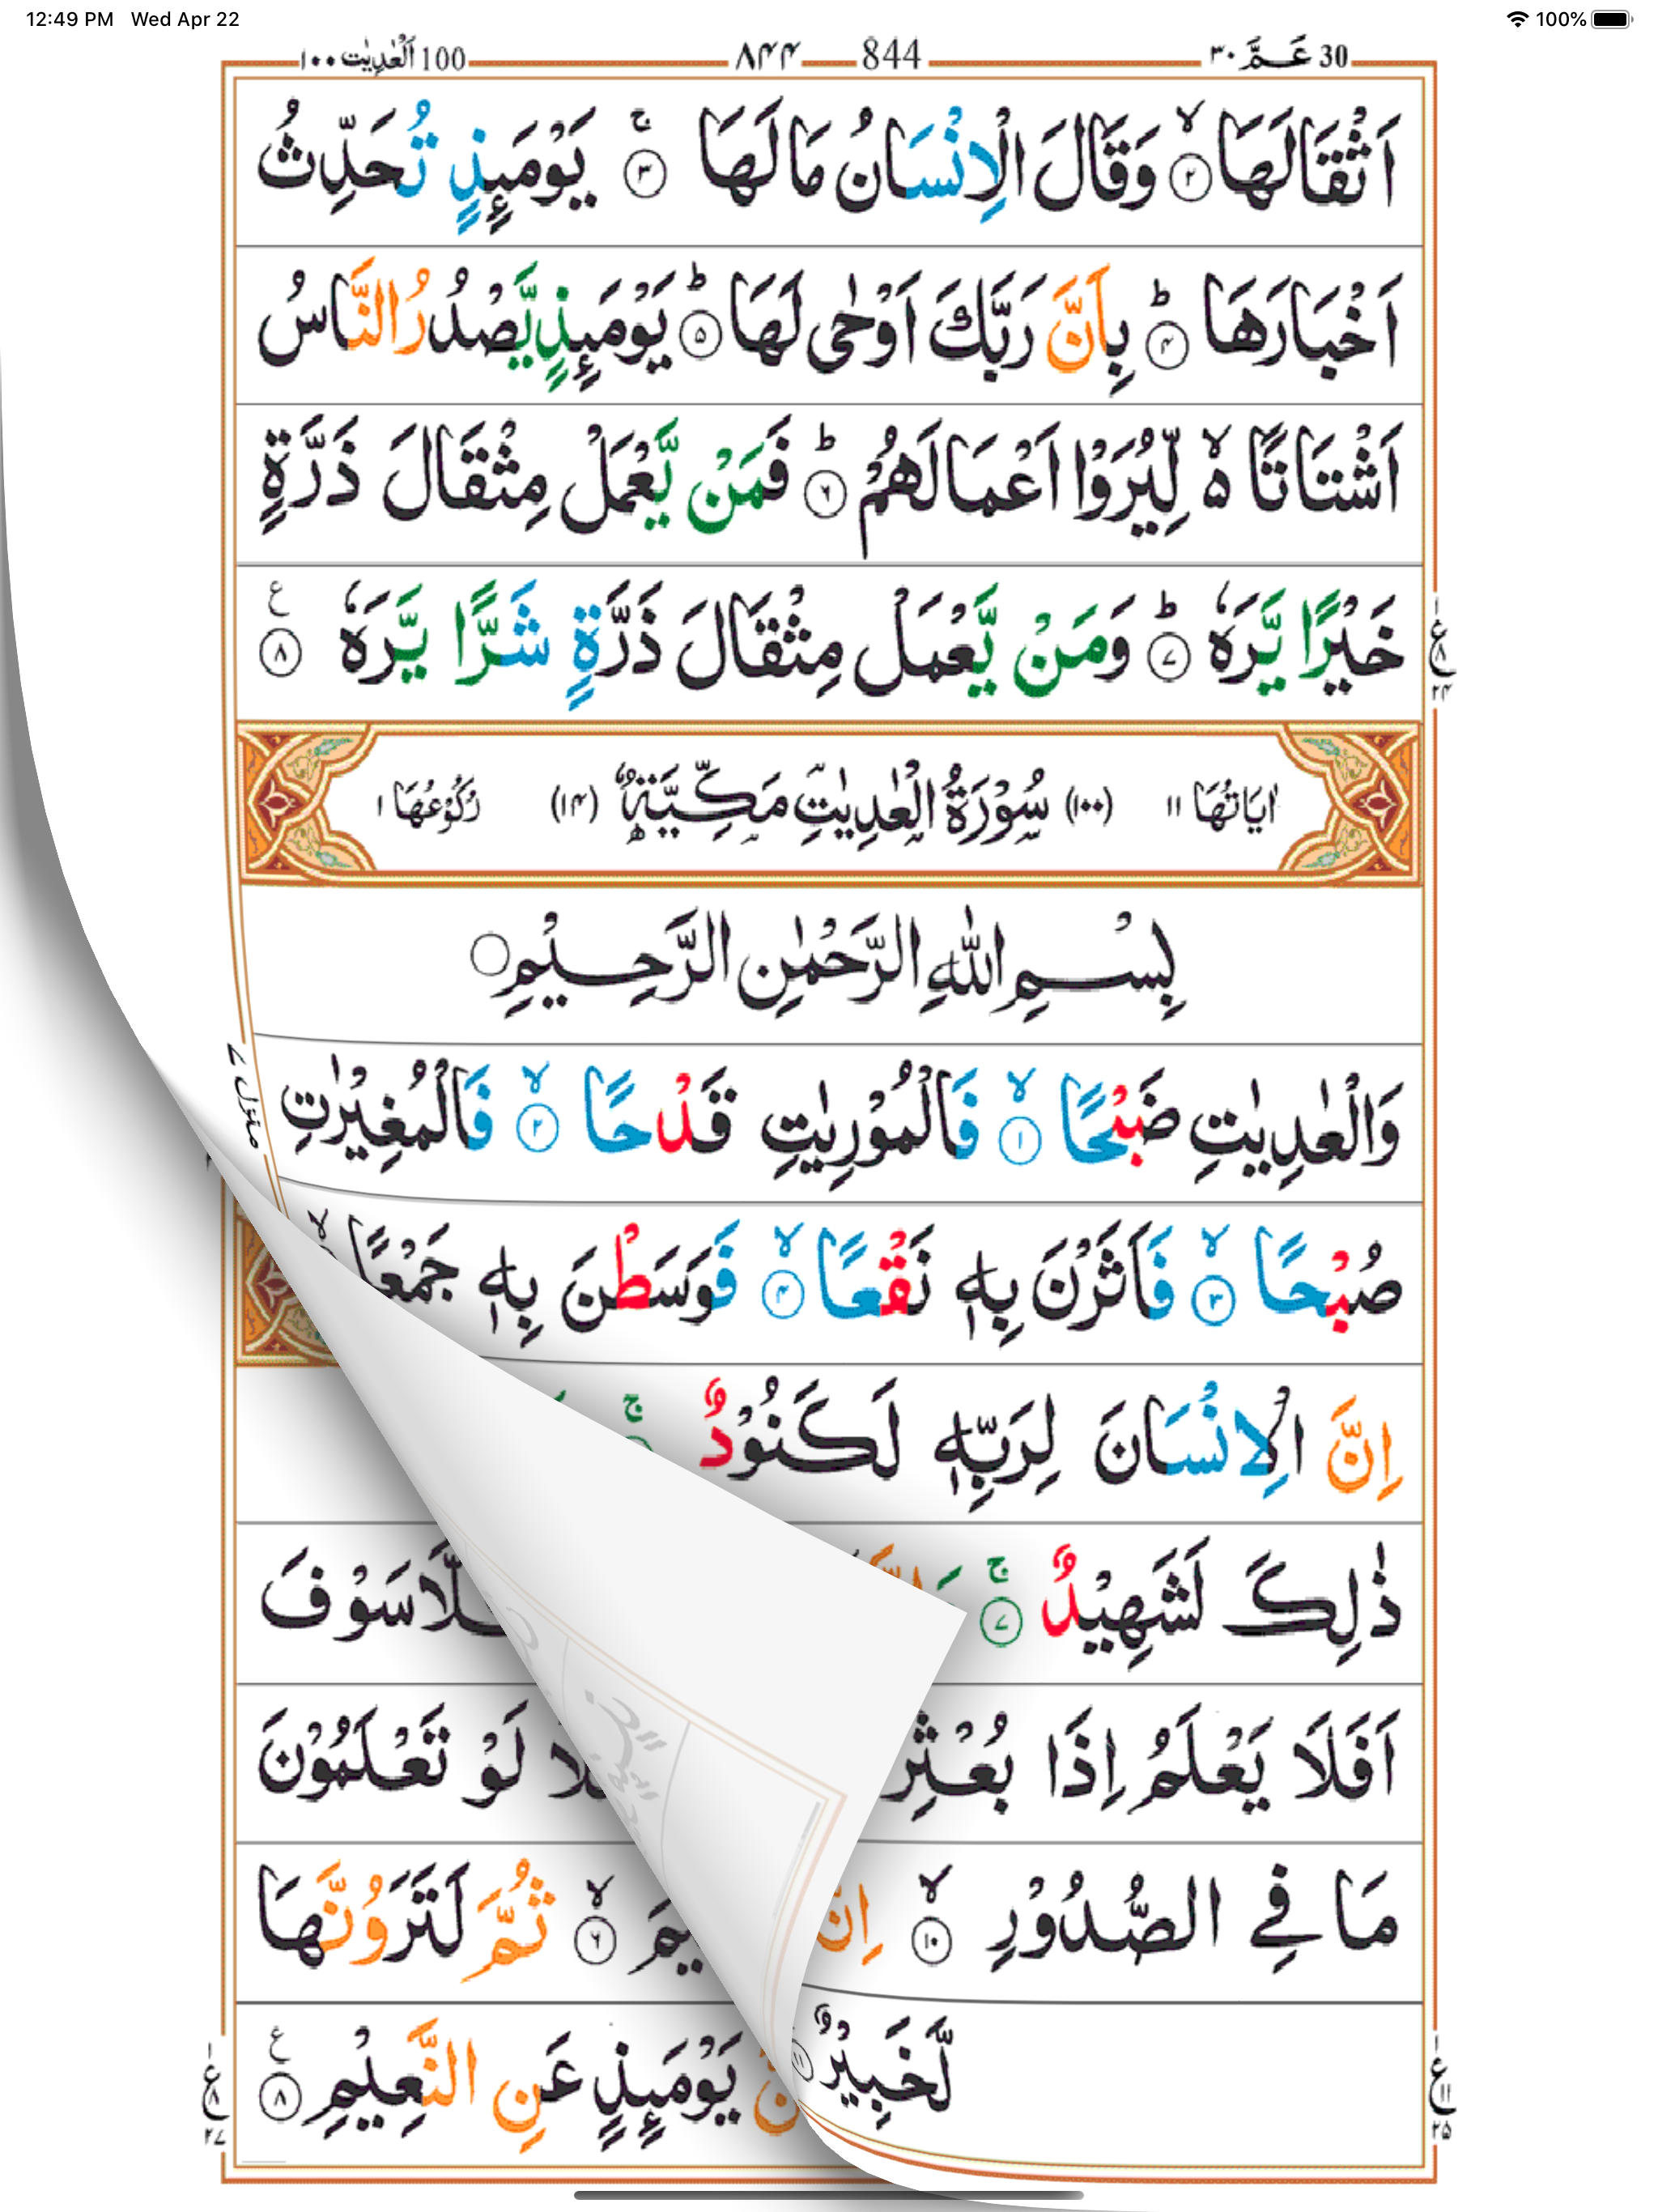 12:49 PM Wed Apr 22 100%
30 عَمَّ ٣٠ 844 ۸۴۴ 100 الْعٰدِيٰت ١٠٠
اَثْقَالَهَا ۙ‏﴿۲﴾ وَقَالَ الْاِنْسَانُ مَا لَهَا ۚ‏﴿۳﴾ يَوْمَئِذٍ تُحَدِّثُ
اَخْبَارَهَا ؕ‏﴿۴﴾ بِاَنَّ رَبَّكَ اَوْحٰى لَهَا ؕ‏﴿۵﴾ يَوْمَئِذٍ يَّصْدُرُ النَّاسُ
اَشْتَاتًا ۙ۬ لِّيُرَوْا اَعْمَالَهُمْ ؕ‏﴿۶﴾ فَمَنْ يَّعْمَلْ مِثْقَالَ ذَرَّةٍ
خَيْرًا يَّرَهٗ ؕ‏﴿۷﴾ وَمَنْ يَّعْمَلْ مِثْقَالَ ذَرَّةٍ شَرًّا يَّرَهٗ ‏﴿۸﴾ ع
ع ۸ ۲۴
اٰيَاتُهَا ١١ (١٠٠) سُوْرَةُ الْعٰدِيٰتِ مَكِّيَّةٌ (۱۴) رُكُوْعُهَا ١
بِسْمِ اللّٰهِ الرَّحْمٰنِ الرَّحِيْمِ
وَالْعٰدِيٰتِ ضَبْحًا ۙ‏﴿۱﴾ فَالْمُوْرِيٰتِ قَدْحًا ۙ‏﴿۲﴾ فَالْمُغِيْرٰتِ
منزل ۷
صُبْحًا ۙ‏﴿۳﴾ فَاَثَرْنَ بِهٖ نَقْعًا ۙ‏﴿۴﴾ فَوَسَطْنَ بِهٖ جَمْعًا ۙ
اِنَّ الْاِنْسَانَ لِرَبِّهٖ لَكَنُوْدٌ ۚ
ذٰلِكَ لَشَهِيْدٌ ۚ‏﴿۷﴾ سَوْفَ
اَفَلَا يَعْلَمُ اِذَا بُعْثِرَ لَوْ تَعْلَمُوْنَ
مَا فِى الصُّدُوْرِ ۙ‏﴿۱۰﴾ اِنَّ ۙ‏﴿۶﴾ ثُمَّ لَتَرَوُنَّهَا
لَّخَبِيْرٌ ‏﴿۱۱﴾ يَوْمَئِذٍ عَنِ النَّعِيْمِ ‏﴿۸﴾ ع
ع ۱۱ ۲۵ ع ۸ ۲۷